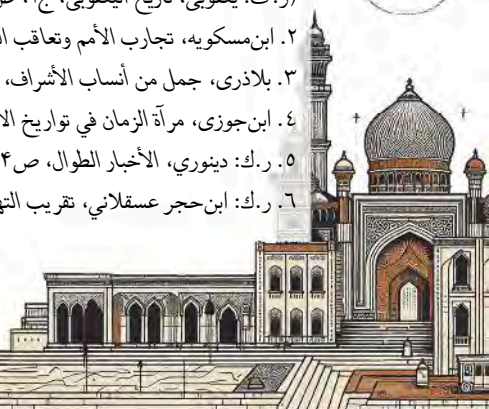 (ر.ک: یعقوبی، تاریخ الیعقوبی، ج۱، ص
٢. ابن‌مسکویه، تجارب الأمم وتعاقب
٣. بلاذری، جمل من أنساب الأشراف،
٤. ابن‌جوزی، مرآة الزمان في تواريخ
٥. ر.ك: دينوري، الأخبار الطوال، ص
٦. ر.ك: ابن‌حجر عسقلاني، تقريب